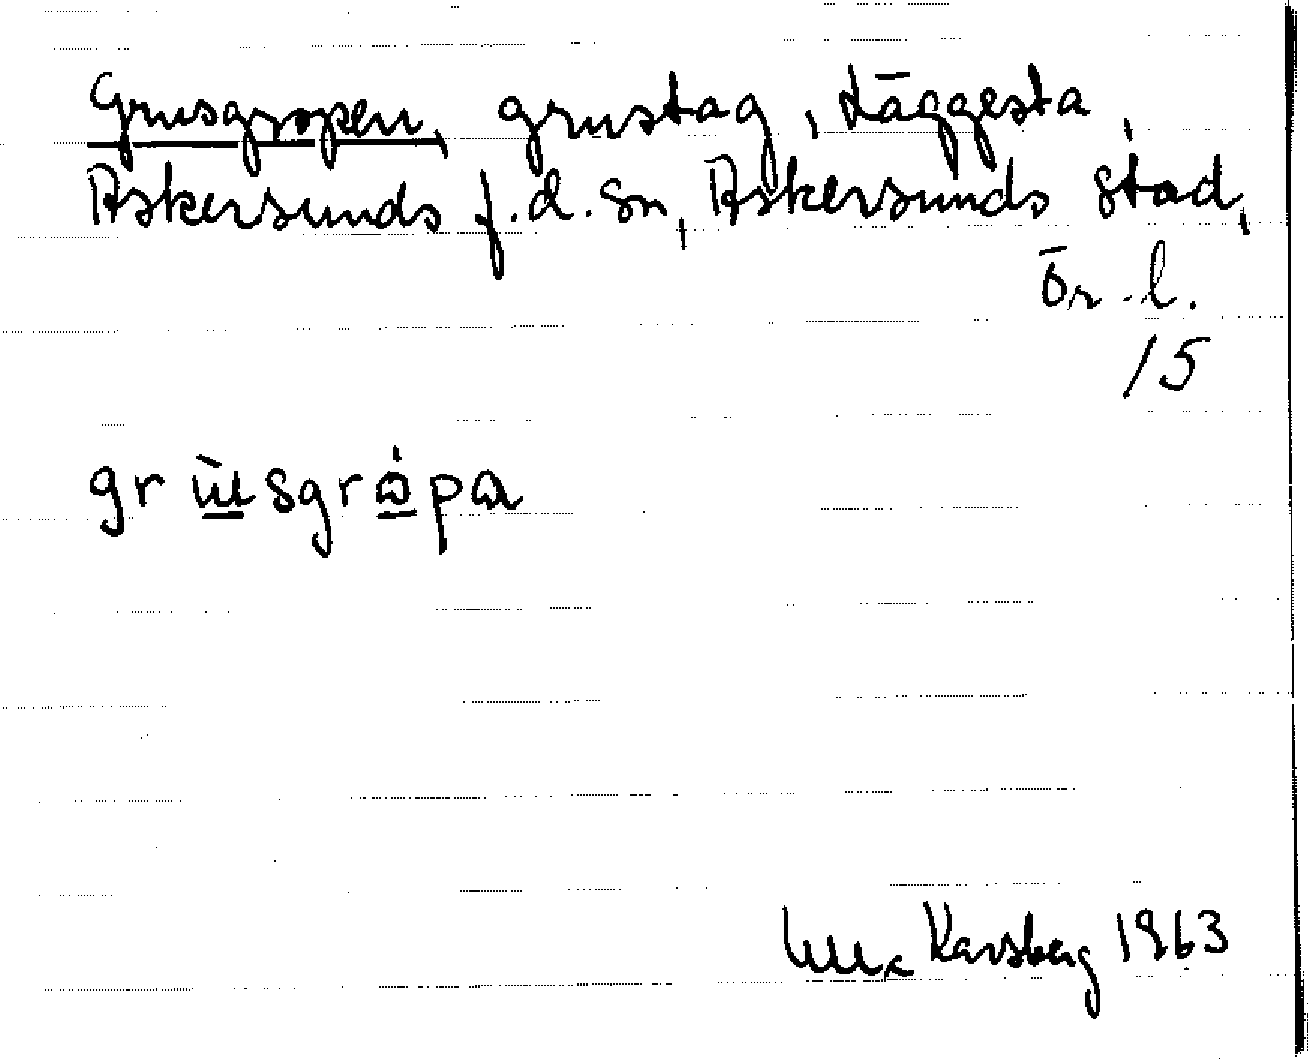 Grusgropen, grustag, Läggesta,
Askersunds f.d. sn, Askersunds stad,
Ör. l.
15
grùsgròpa
Karsberg 1963